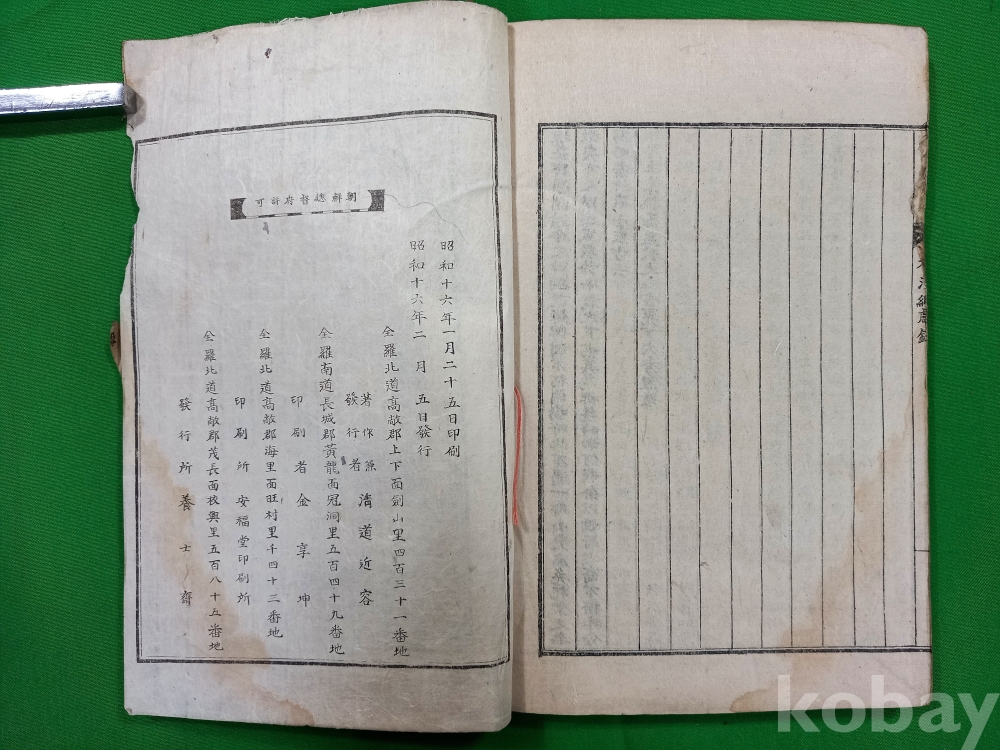 朝鮮總督府許可
昭和十六年一月二十五日印刷
昭和十六年二月五日發行
仝羅北道高敞郡上下面劍山里四百三十一番地
著作兼發行者 清道近容
仝羅南道長城郡黃龍面冠洞里五百四十九番地
印刷者 金享坤
仝羅北道高敞郡海里面旺村里千四十三番地
印刷所 安福堂印刷所
仝羅北道高敞郡茂長面校興里五百八十五番地
發行所 養士齋
kobay